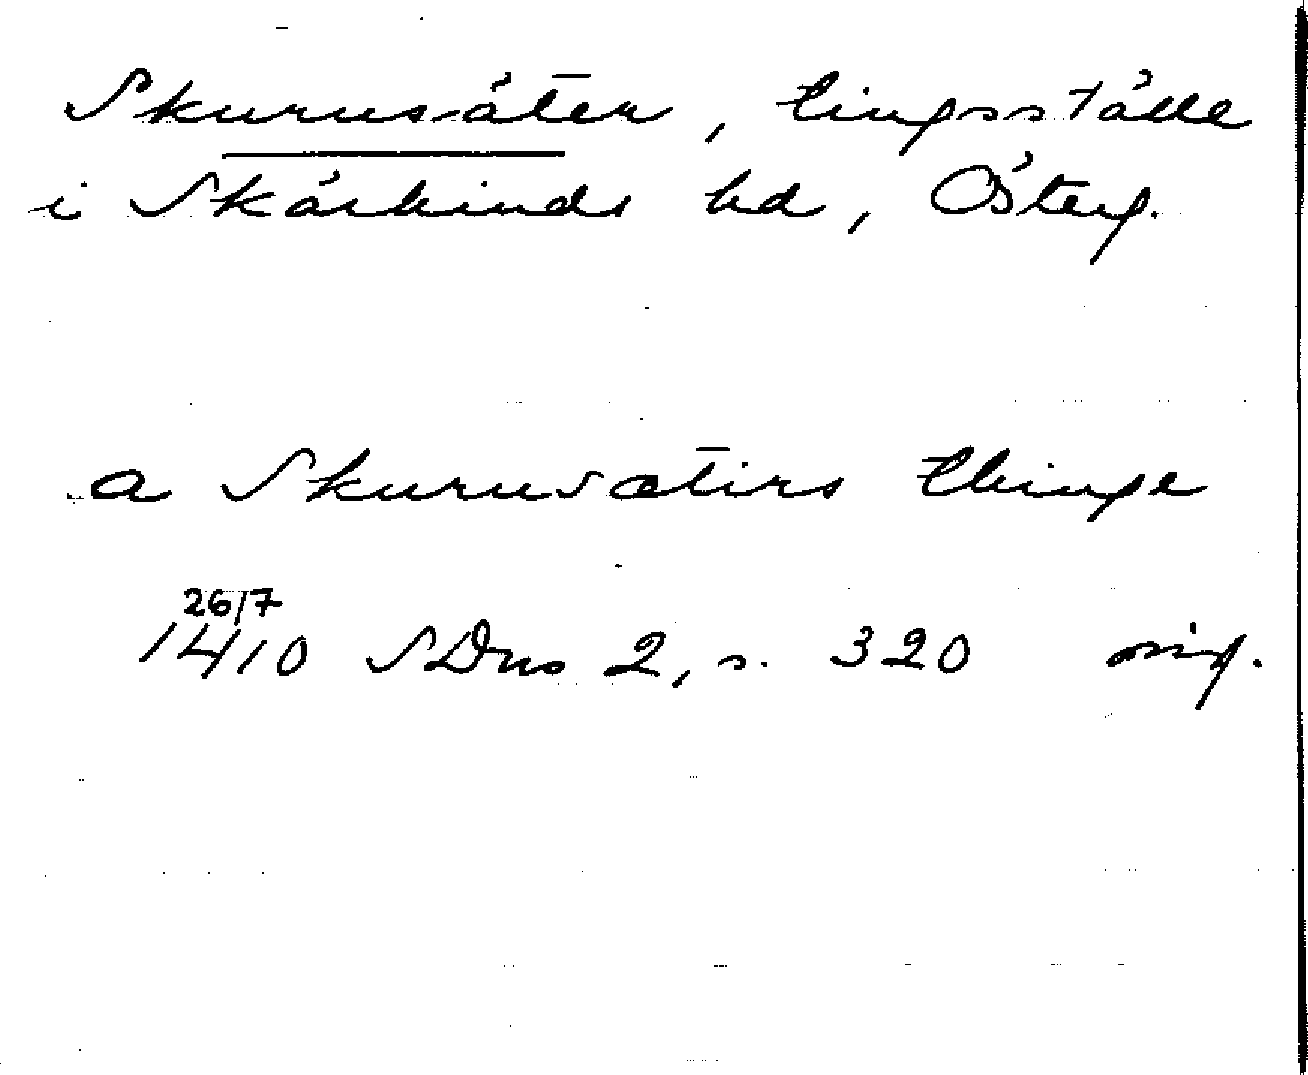 Skurusäter, tingsställe
i Skärkinds hd, Österg.
a Skurusætirs thinge
26/7
1410 SDns 2, s. 320 orig.